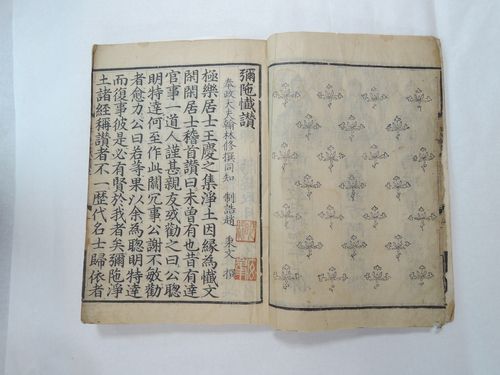 彌陁懺讚
奉政大夫翰林修撰同知 制誥趙 秉文 撰
極樂居士王慶之集淨土因緣為懺文
閑閑居士稽首讚曰未曾有也昔有達
官事一道人謹甚親友或勸之曰公聰
明特達何至作此闒冗事公謝不敏勸
者愈力公曰若等果以余為聰明特達
而復事彼是必有賢於我者矣彌陁淨
土諸經稱讚者不一歷代名士歸依者